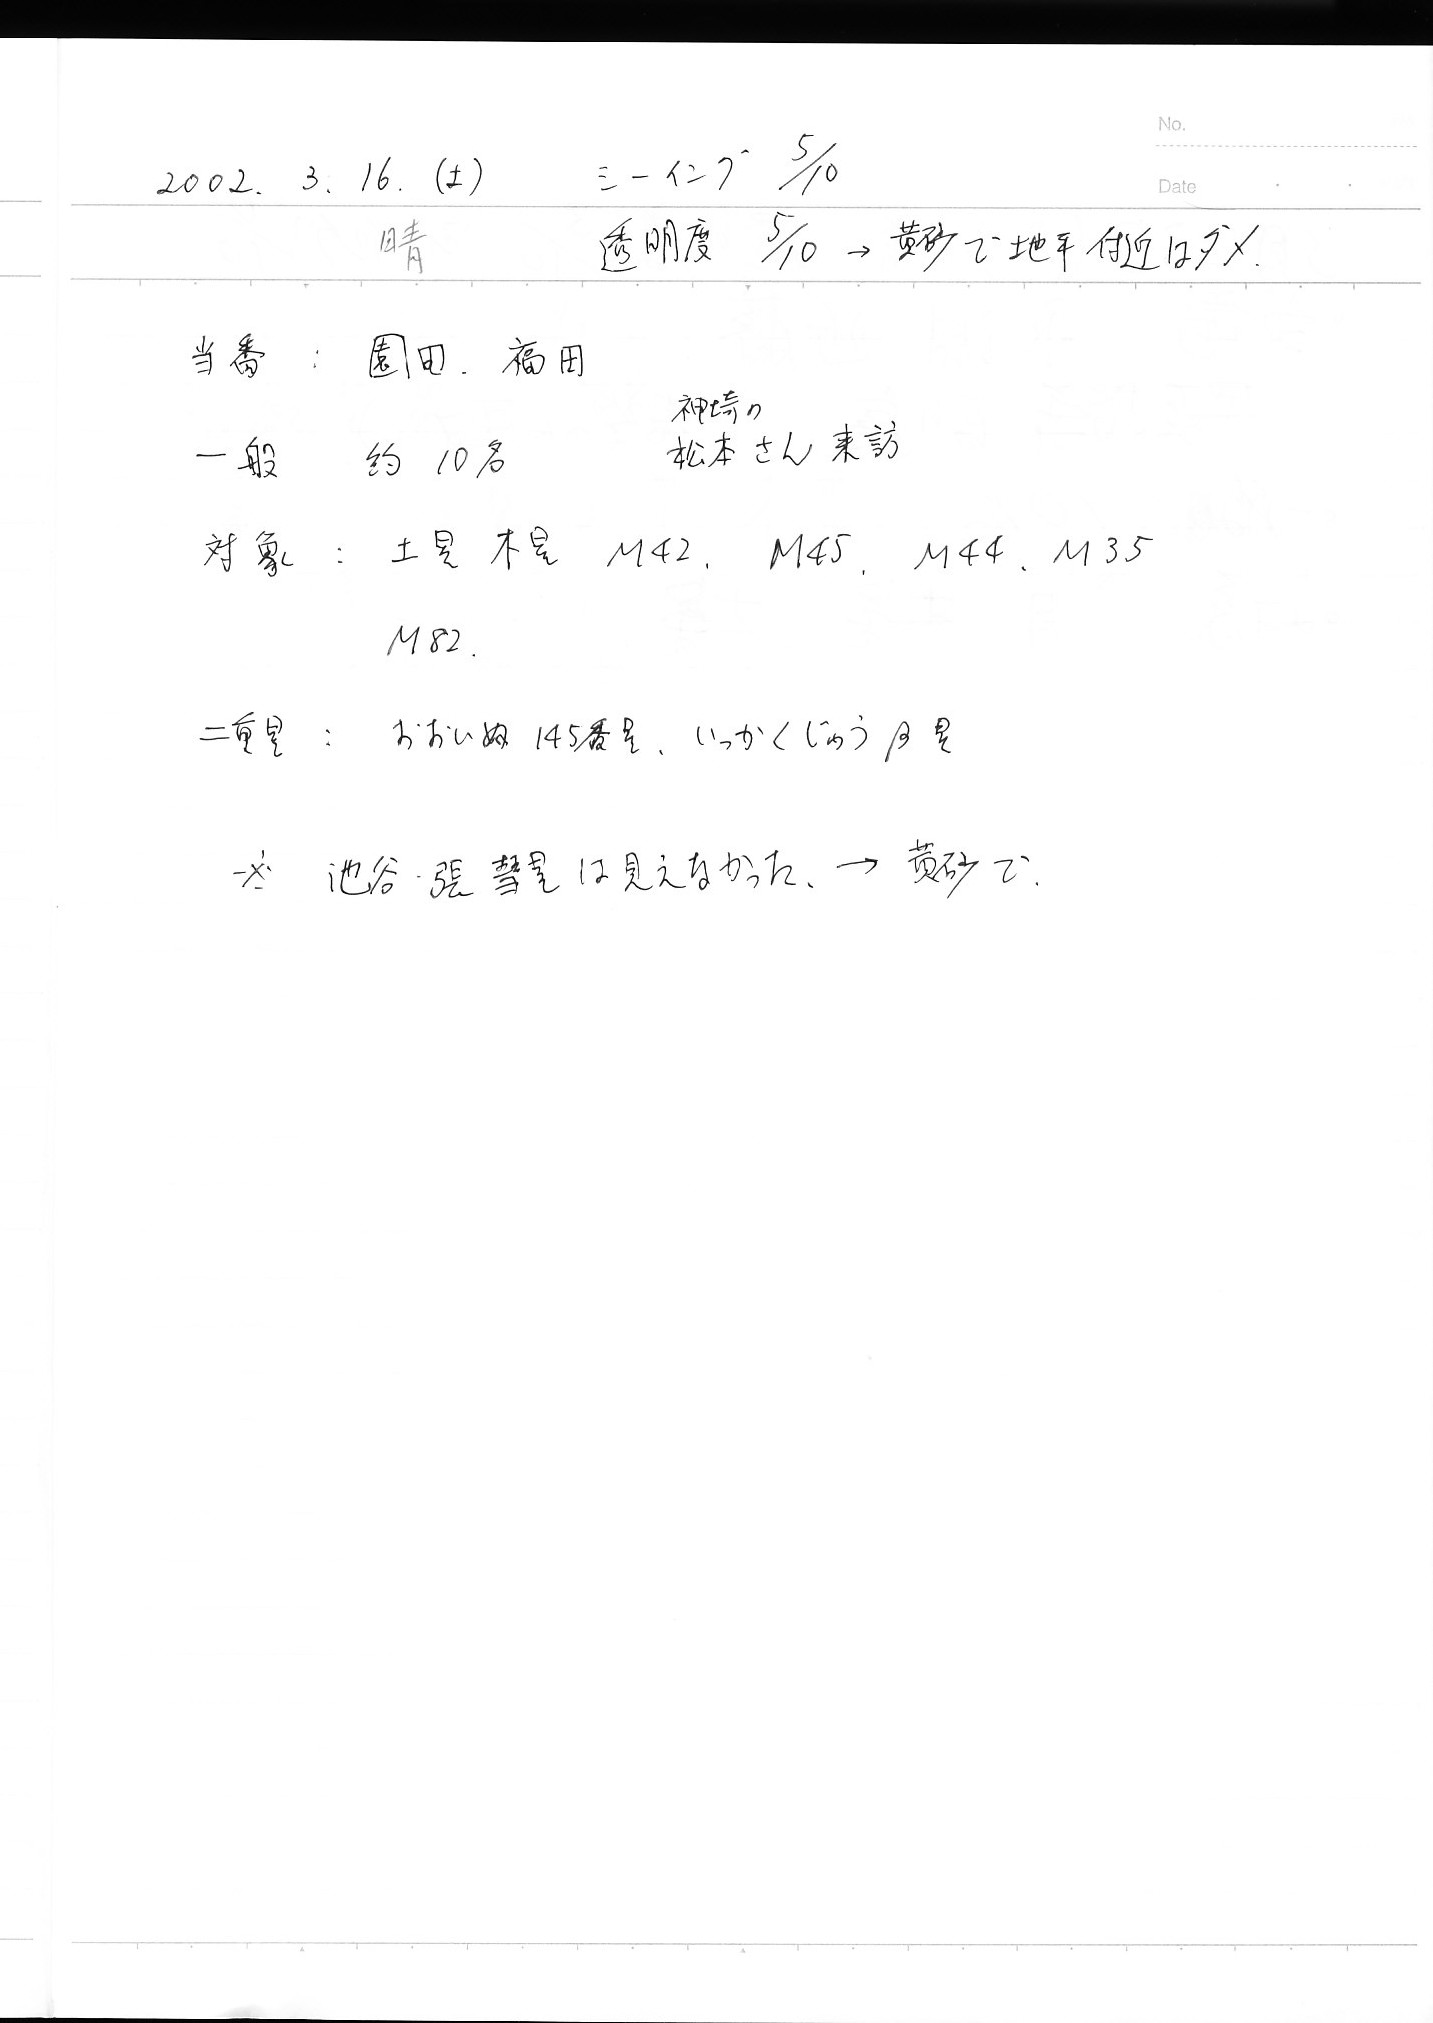 No.
2002. 3. 16. (土) シーイング 5/10
Date
晴 透明度 5/10 → 黄砂で地平付近はダメ.
当番 : 園田. 福田
神埼の
一般 約 10名 松本さん来訪
対象 : 土星 木星 M42. M45. M44. M35
M82.
二重星 : おおいぬ 145番星. いっかくじゅう β星
※ 池谷・張彗星は見えなかった. → 黄砂で.